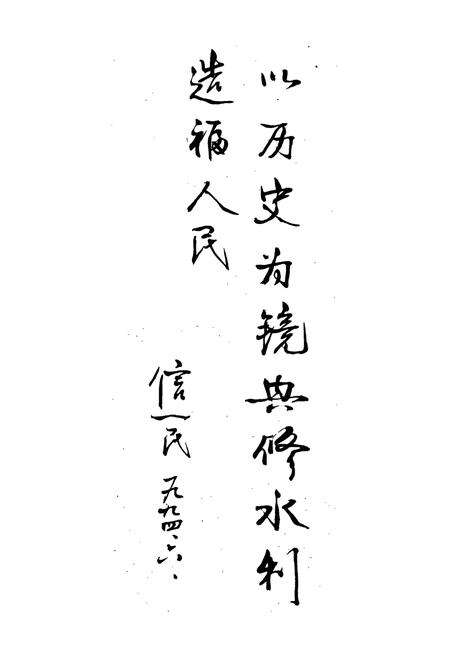 以历史为镜興修水利
造福人民
信一民 一九九四、六、